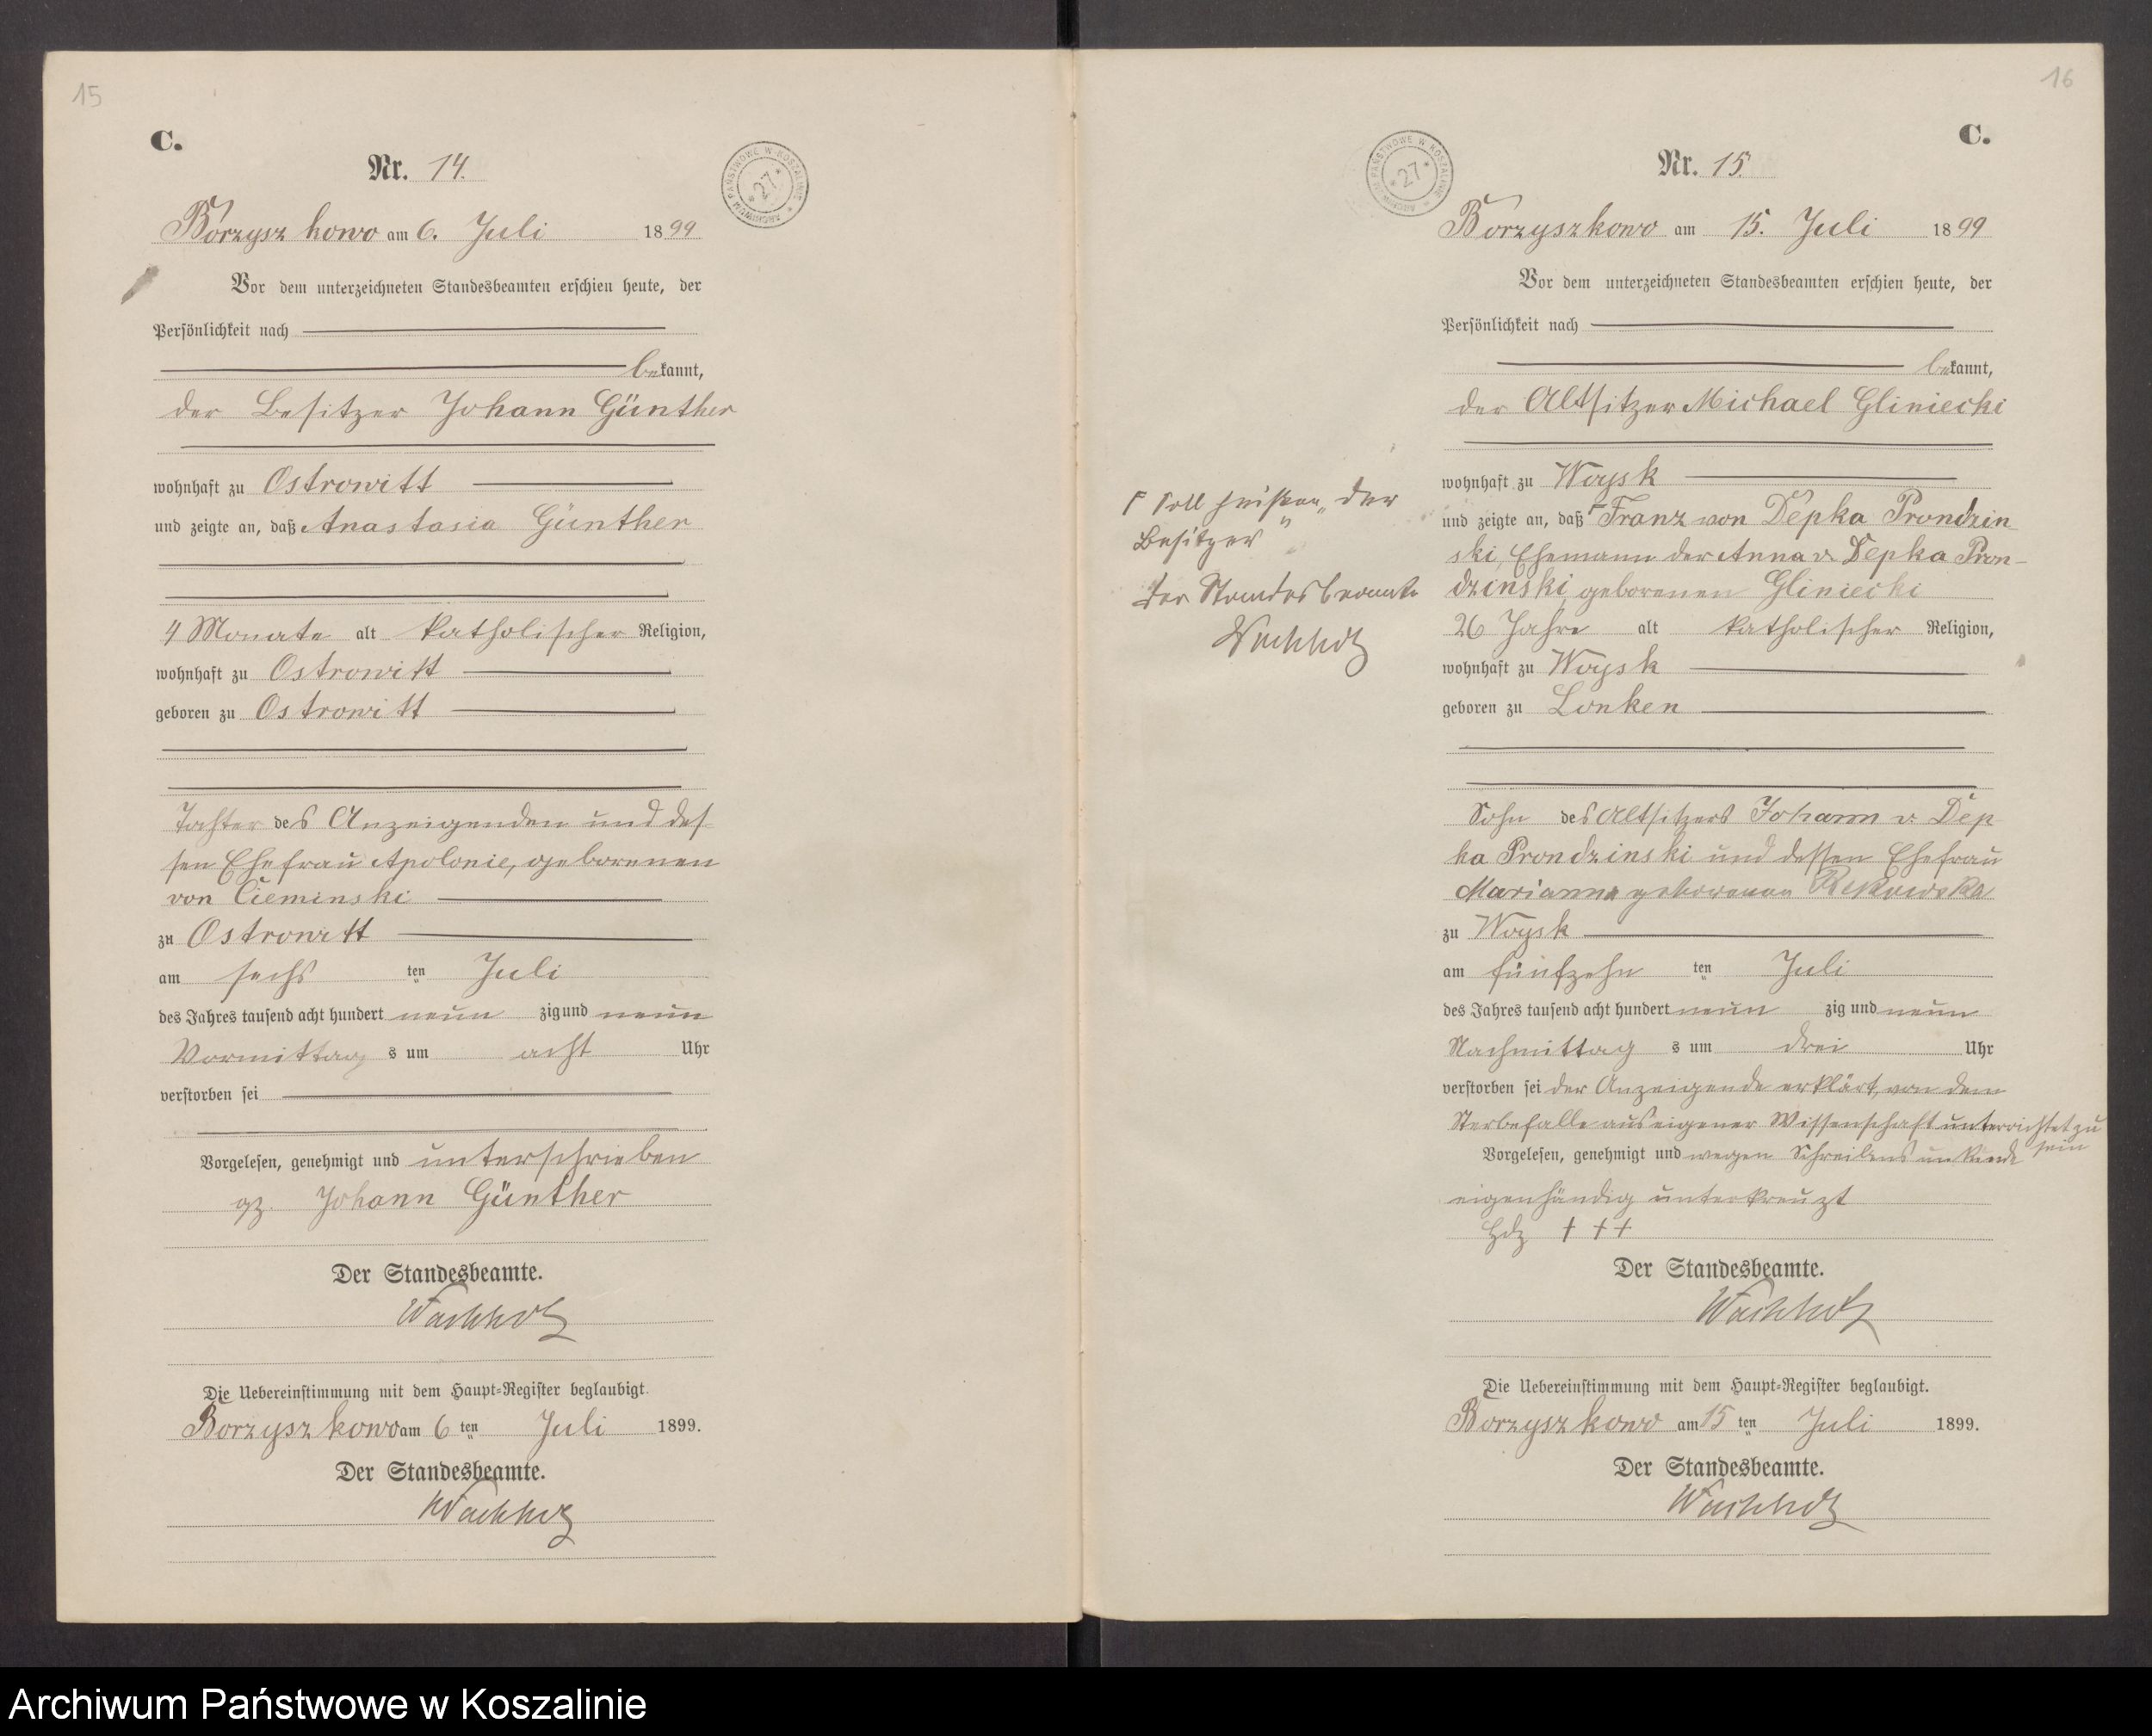 15
C.
Nr. 14.
ARCHIWUM PAŃSTWOWE W KOSZALINIE * 27 *
Borzyszkowo am 6. Juli 1899
Vor dem unterzeichneten Standesbeamten erschien heute, der
Persönlichkeit nach
bekannt,
der Besitzer Johann Günther
wohnhaft zu Ostrowitt
und zeigte an, daß Anastasia Günther
4 Monate alt katholischer Religion,
wohnhaft zu Ostrowitt
geboren zu Ostrowitt
Tochter des Anzeigenden und des-
sen Ehefrau Apolonie, geborenen
von Cieminski
zu Ostrowitt
am sechs ten Juli
des Jahres tausend acht hundert neun zig und neun
Vormittag s um acht Uhr
verstorben sei
Vorgelesen, genehmigt und unterschrieben
gz. Johann Günther
Der Standesbeamte.
Wachholz
Die Uebereinstimmung mit dem Haupt-Register beglaubigt.
Borzyszkowo am 6 ten Juli 1899.
Der Standesbeamte.
Wachholz
16
C.
Nr. 15.
ARCHIWUM PAŃSTWOWE W KOSZALINIE * 27 *
Borzyszkowo am 15. Juli 1899
Vor dem unterzeichneten Standesbeamten erschien heute, der
Persönlichkeit nach
bekannt,
der Altsitzer Michael Gliniecki
wohnhaft zu Woysk
und zeigte an, daß ⌈Franz von Depka Prondzin
ski, Ehemann der Anna v. Depka Pron-
dzinski, geborenen Gliniecki
26 Jahre alt katholischer Religion,
wohnhaft zu Woysk
geboren zu Lonken
⌈ soll heißen „der
Besitzer"
Der Standesbeamte
Wachholz
Sohn des Altsitzers Johann v. Dep
ka Prondzinski und dessen Ehefrau
Marianna geborenen Rekowska
zu Woysk
am fünfzehn ten Juli
des Jahres tausend acht hundert neun zig und neun
Nachmittag s um drei Uhr
verstorben sei der Anzeigende erklärt, von dem
Sterbefalle aus eigener Wissenschaft unterrichtet zu
sein
Vorgelesen, genehmigt und wegen Schreibens unkunde
eigenhändig unterkreuzt
Hdz + + +
Der Standesbeamte.
Wachholz
Die Uebereinstimmung mit dem Haupt-Register beglaubigt.
Borzyszkowo am 15 ten Juli 1899.
Der Standesbeamte.
Wachholz
Archiwum Państwowe w Koszalinie